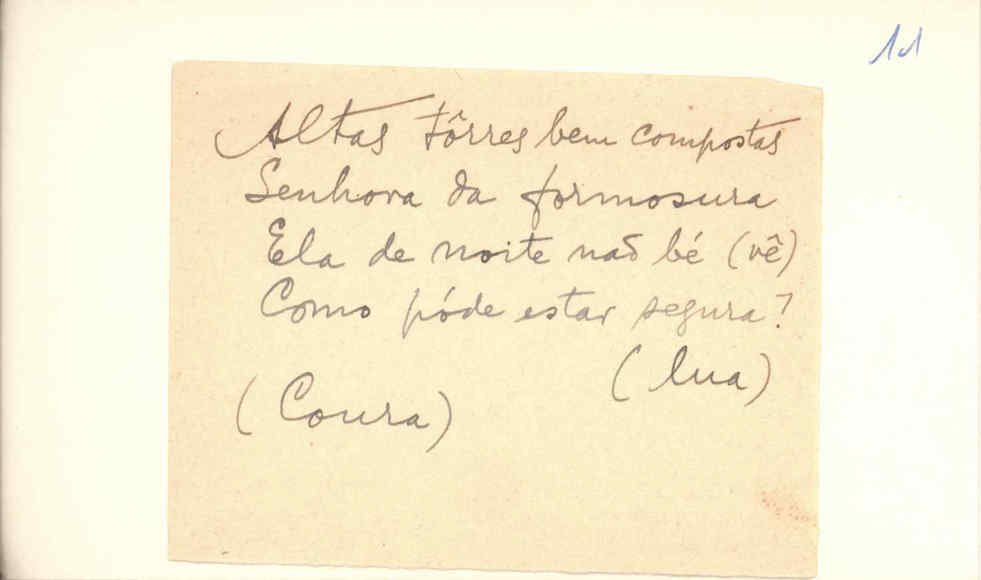 11
Altas tôrres bem compostas
Senhora da formosura
Ela de noite não bé (vê)
Como póde estar segura?
(lua)
(Coura)